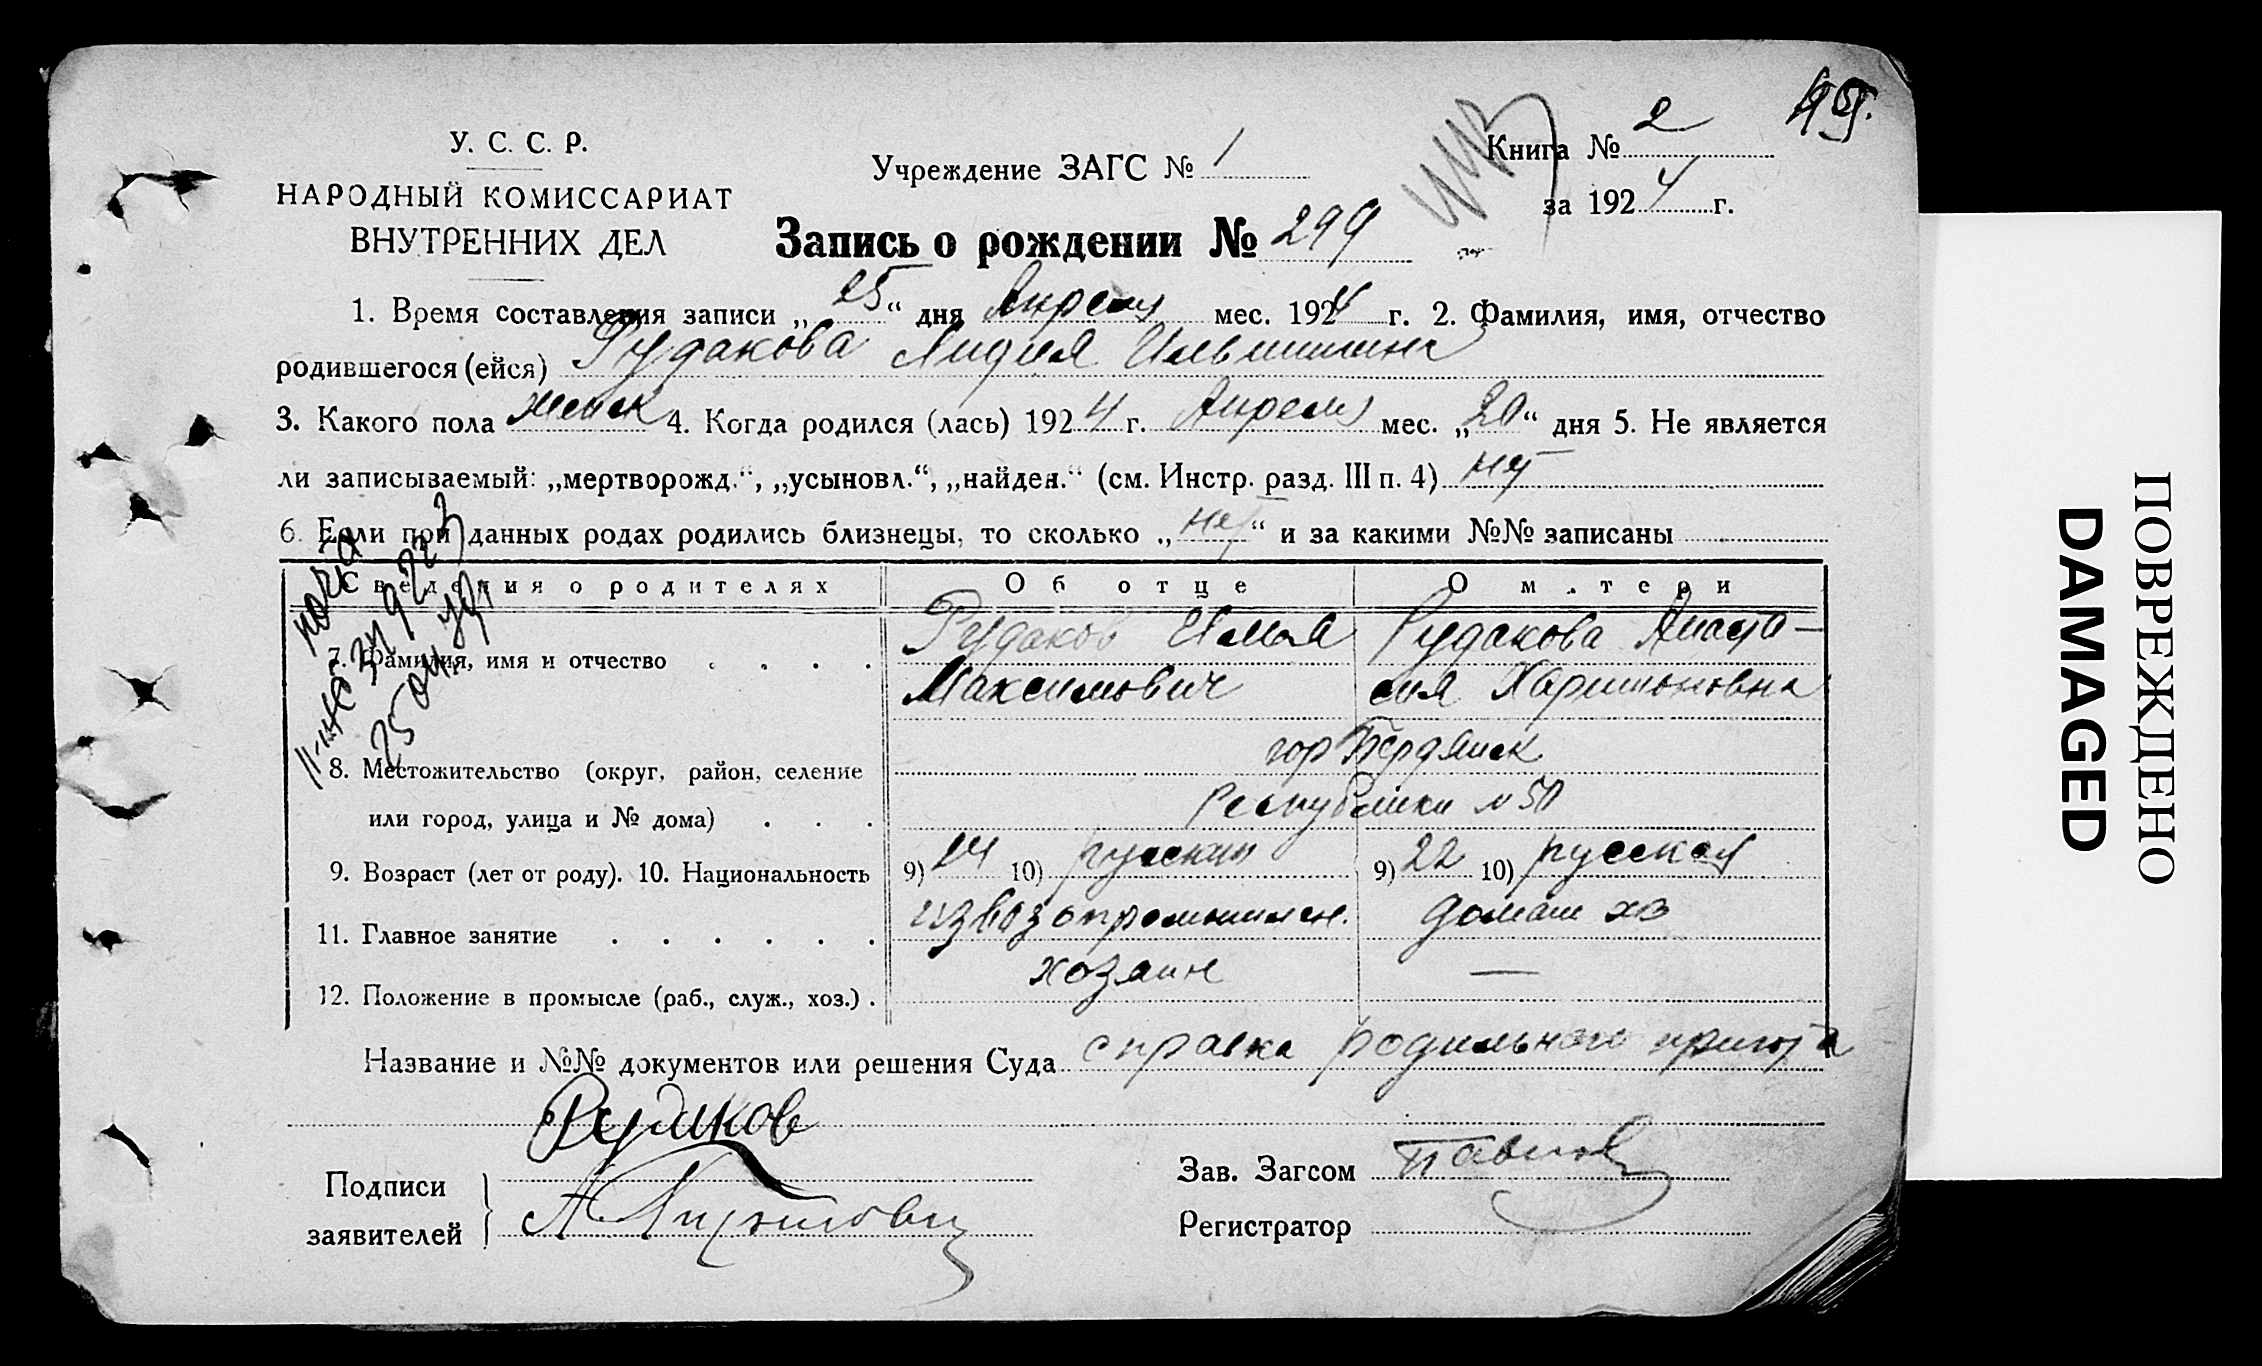 У. С. С. Р.
НАРОДНЫЙ КОМИССАРИАТ
ВНУТРЕННИХ ДЕЛ
Учреждение ЗАГС № 1
Книга № 2
за 1924 г.
Запись о рождении № 299
1. Время составления записи „25“ дня Апреля мес. 1924 г. 2. Фамилия, имя, отчество
родившегося (ейся) Рудакова Лидия Ильинишна
3. Какого пола женск 4. Когда родился (лась) 1924 г. Апреля мес. „20“ дня 5. Не является
ли записываемый: „мертворожд.“, „усыновл.“, „найден.“ (см. Инстр. разд. III п. 4) нет
6. Если при данных родах родились близнецы, то сколько „нет“ и за какими №№ записаны
Сведения о родителях Об отце О м.тери
7. Фамилия, имя и отчество Рудаков Илья Рудакова Анаста-
Максимович сия Харитоновна
8. Местожительство (округ, район, селение гор Бердянск
или город, улица и № дома) Республики № 50
9. Возраст (лет от роду). 10. Национальность 9) 24 10) русский 9) 22 10) русская
11. Главное занятие извозопромышлен. домаш хз
12. Положение в промысле (раб., служ., хоз.) хозяин —
Название и №№ документов или решения Суда справка родильного приюта
Рудаков
Подписи
заявителей
Зав. Загсом Павлов
Регистратор
ПОВРЕЖДЕНО
DAMAGED